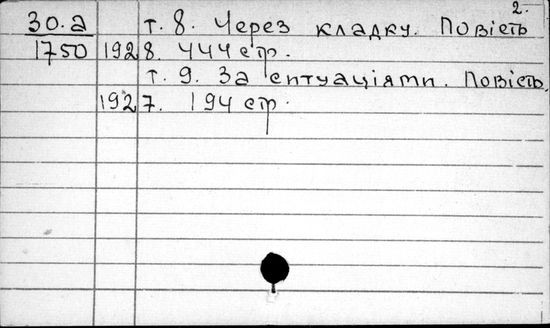 2.
30.а т. 8. Через кладку. Повість
1750 1928. 444 стр.
т. 9. За ситуаціями. Повість.
1927. 194 стр.